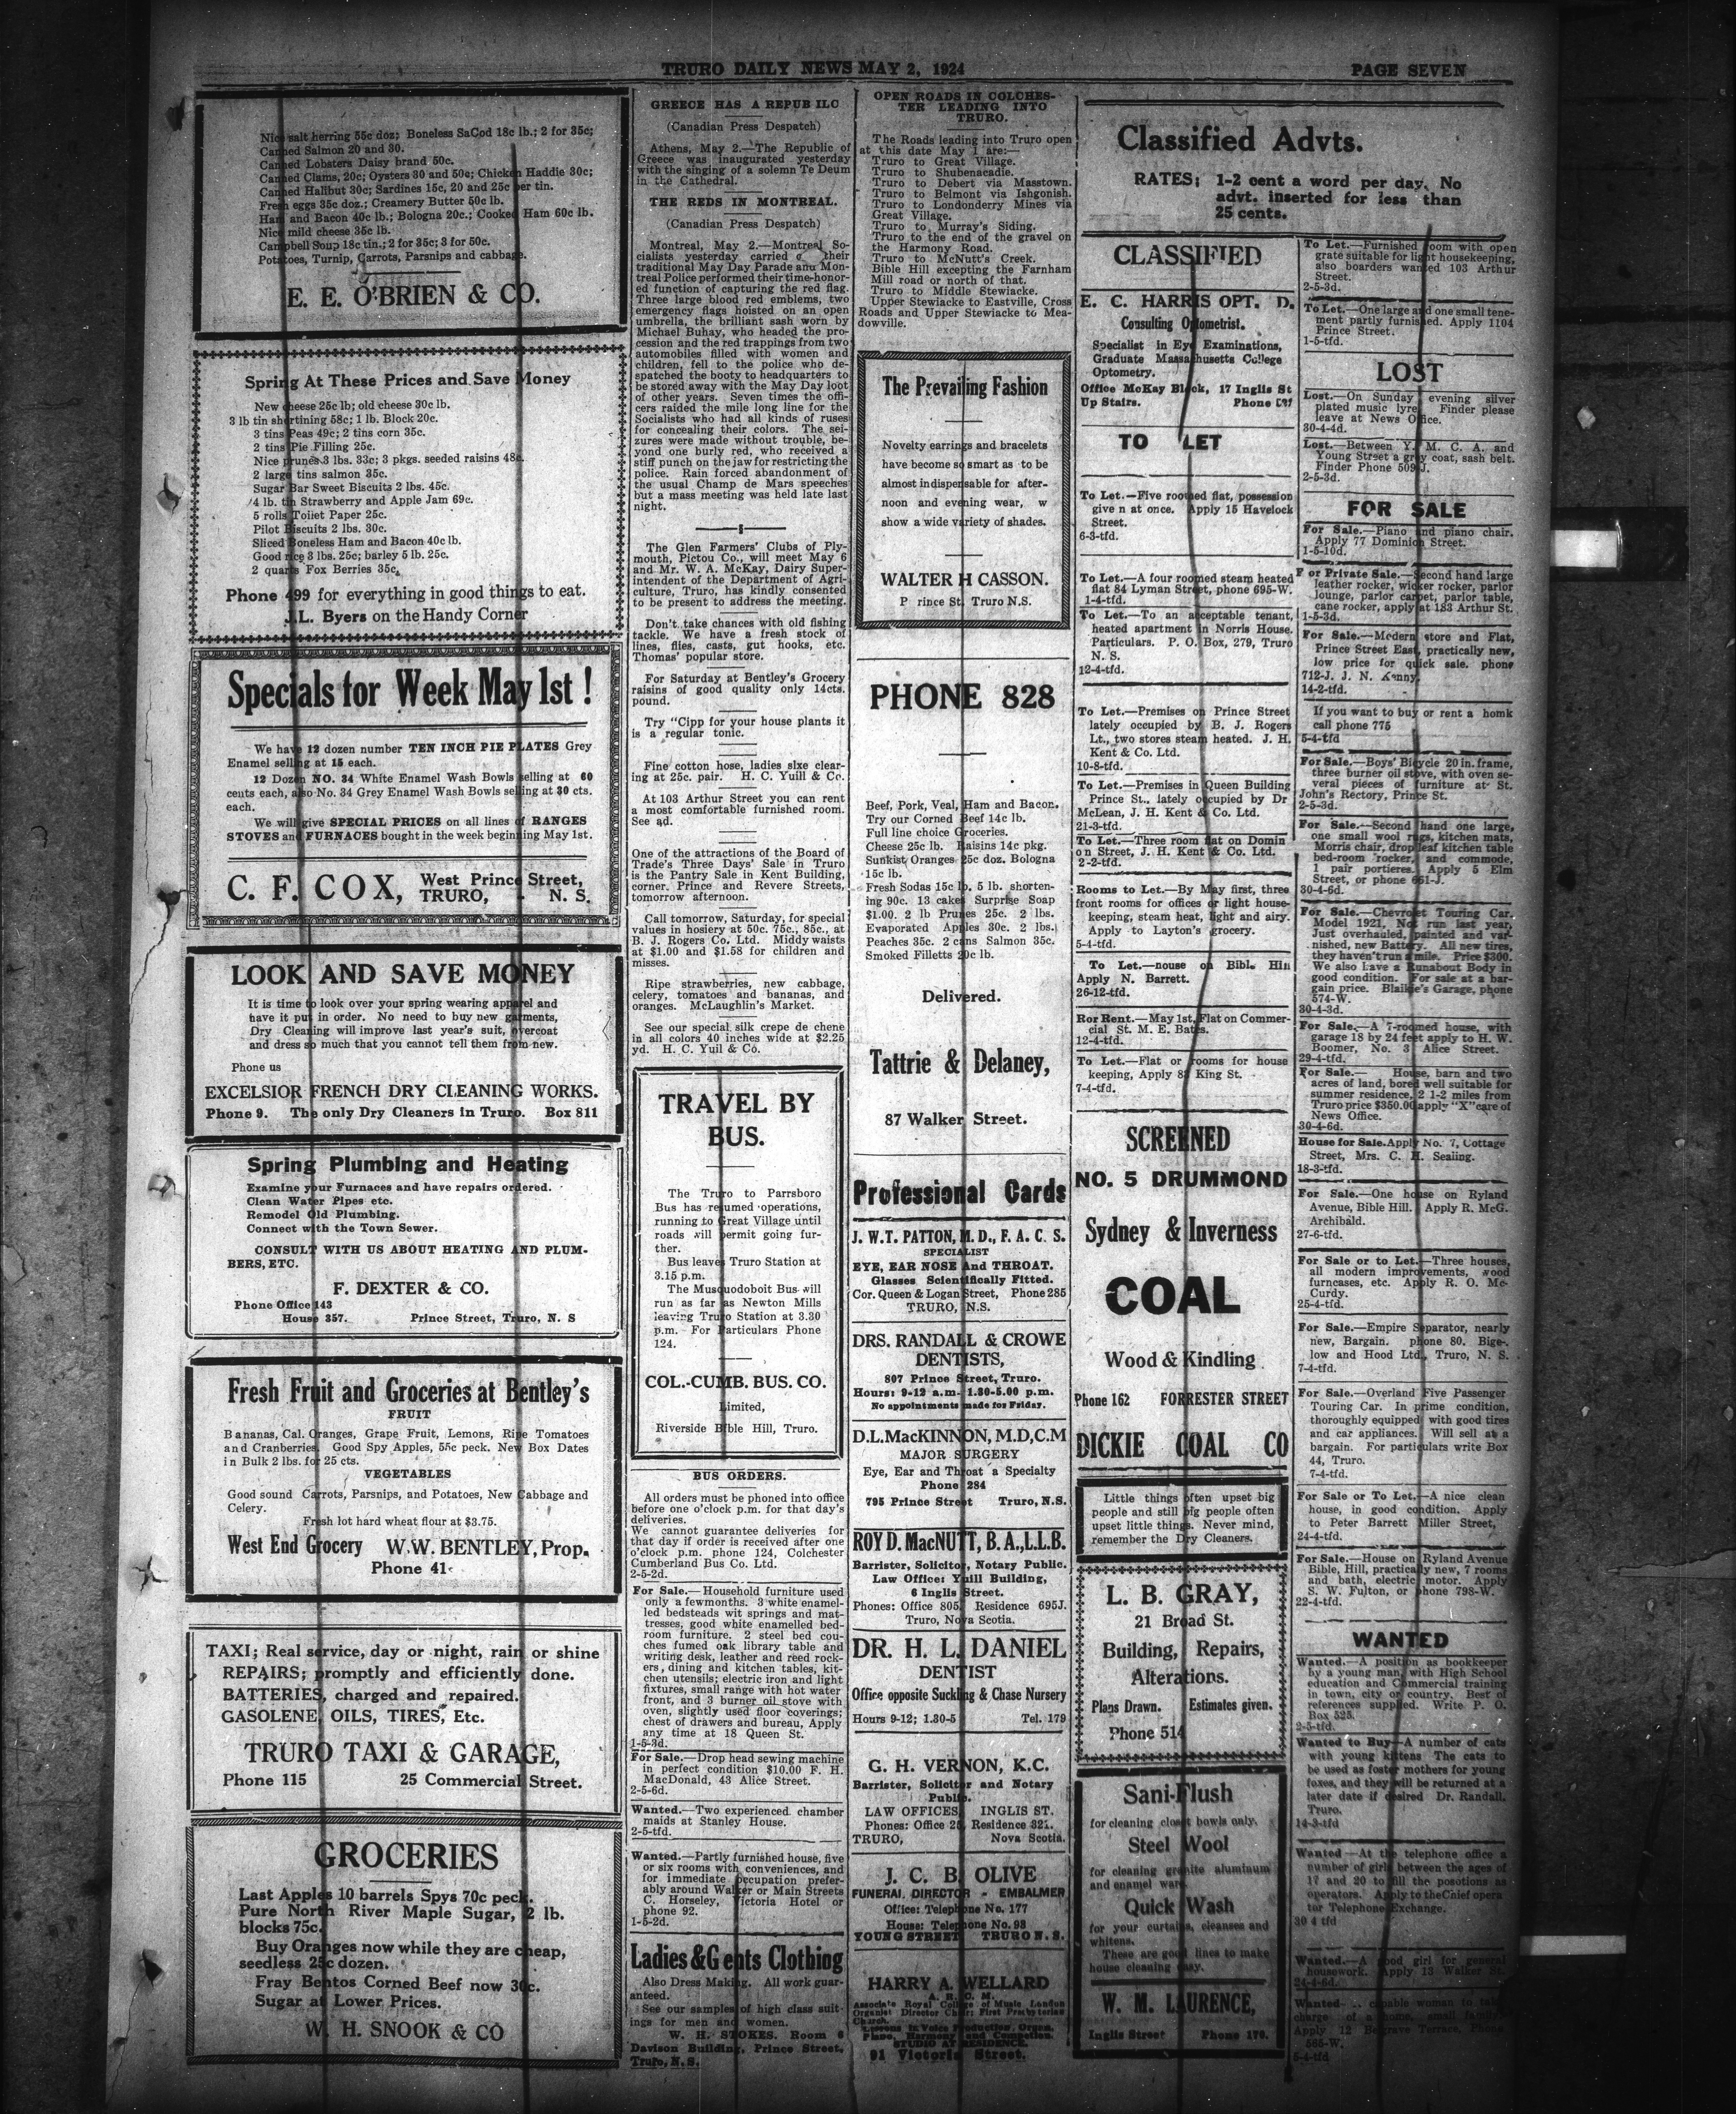 TRURO DAILY NEWS MAY 2, 1924
PAGE SEVEN
Nice salt herring 55c doz; Boneless SaCod 18c lb.; 2 for 35c;
Canned Salmon 20 and 30.
Canned Lobsters Daisy brand 50c.
Canned Clams, 20c; Oysters 30 and 50c; Chicken Haddie 30c;
Canned Halibut 30c; Sardines 15c, 20 and 25c per tin.
Fresh eggs 35c doz.; Creamery Butter 50c lb.
Ham and Bacon 40c lb.; Bologna 20c.; Cooked Ham 60c lb.
Nice mild cheese 35c lb.
Campbell Soup 18c tin.; 2 for 35c; 3 for 50c.
Potatoes, Turnip, Carrots, Parsnips and cabbage.
E. E. O'BRIEN & CO.
Spring At These Prices and Save Money
New cheese 25c lb; old cheese 30c lb.
3 lb tin shortining 58c; 1 lb. Block 20c.
3 tins Peas 49c; 2 tins corn 35c.
2 tins Pie Filling 25c.
Nice prunes 3 lbs. 33c; 3 pkgs. seeded raisins 48c.
2 large tins salmon 35c.
Sugar Bar Sweet Biscuits 2 lbs. 45c.
4 lb. tin Strawberry and Apple Jam 69c.
5 rolls Toilet Paper 25c.
Pilot Biscuits 2 lbs. 30c.
Sliced Boneless Ham and Bacon 40c lb.
Good rice 3 lbs. 25c; barley 5 lb. 25c.
2 quarts Fox Berries 35c.
Phone 499 for everything in good things to eat.
J.L. Byers on the Handy Corner
Specials for Week May 1st !
We have 12 dozen number TEN INCH PIE PLATES Grey
Enamel selling at 15 each.
12 Dozen NO. 34 White Enamel Wash Bowls selling at 60
cents each, also No. 34 Grey Enamel Wash Bowls selling at 30 cts.
each.
We will give SPECIAL PRICES on all lines of RANGES
STOVES and FURNACES bought in the week beginning May 1st.
C. F. COX, West Prince Street,
TRURO, - N. S.
LOOK AND SAVE MONEY
It is time to look over your spring wearing apparel and
have it put in order. No need to buy new garments,
Dry Cleaning will improve last year's suit, overcoat
and dress so much that you cannot tell them from new.
Phone us
EXCELSIOR FRENCH DRY CLEANING WORKS.
Phone 9. The only Dry Cleaners in Truro. Box 811
Spring Plumbing and Heating
Examine your Furnaces and have repairs ordered.
Clean Water Pipes etc.
Remodel Old Plumbing.
Connect with the Town Sewer.
CONSULT WITH US ABOUT HEATING AND PLUM-
BERS, ETC.
F. DEXTER & CO.
Phone Office 143
House 357. Prince Street, Truro, N. S
Fresh Fruit and Groceries at Bentley's
FRUIT
Bananas, Cal. Oranges, Grape Fruit, Lemons, Ripe Tomatoes
and Cranberries. Good Spy Apples, 55c peck. New Box Dates
in Bulk 2 lbs. for 25 cts.
VEGETABLES
Good sound Carrots, Parsnips, and Potatoes, New Cabbage and
Celery.
Fresh lot hard wheat flour at $3.75.
West End Grocery W.W. BENTLEY, Prop.
Phone 41
TAXI; Real service, day or night, rain or shine
REPAIRS; promptly and efficiently done.
BATTERIES, charged and repaired.
GASOLENE, OILS, TIRES, Etc.
TRURO TAXI & GARAGE,
Phone 115 25 Commercial Street.
GROCERIES
Last Apples 10 barrels Spys 70c peck.
Pure North River Maple Sugar, 2 lb.
blocks 75c.
Buy Oranges now while they are cheap,
seedless 25c dozen.
Fray Bentos Corned Beef now 30c.
Sugar at Lower Prices.
W. H. SNOOK & CO
GREECE HAS A REPUB ILC
(Canadian Press Despatch)
Athens, May 2.—The Republic of
Greece was inaugurated yesterday
with the singing of a solemn Te Deum
in the Cathedral.
THE REDS IN MONTREAL.
(Canadian Press Despatch)
Montreal, May 2.—Montreal So-
cialists yesterday carried their
traditional May Day Parade and Mon-
treal Police performed their time-honor-
ed function of capturing the red flag.
Three large blood red emblems, two
emergency flags hoisted on an open
umbrella, the brilliant sash worn by
Michael Buhay, who headed the pro-
cession and the red trappings from two
automobiles filled with women and
children, fell to the police who de-
spatched the booty to headquarters to
be stored away with the May Day loot
of other years. Seven times the offi-
cers raided the mile long line for the
Socialists who had all kinds of ruses
for concealing their colors. The sei-
zures were made without trouble, be-
yond one burly red, who received a
stiff punch on the jaw for restricting the
police. Rain forced abandonment of
the usual Champ de Mars speeches
but a mass meeting was held late last
night.
The Glen Farmers' Clubs of Ply-
mouth, Pictou Co., will meet May 6
and Mr. W. A. McKay, Dairy Super-
intendent of the Department of Agri-
culture, Truro, has kindly consented
to be present to address the meeting.
Don't take chances with old fishing
tackle. We have a fresh stock of
lines, flies, casts, gut hooks, etc.
Thomas' popular store.
For Saturday at Bentley's Grocery
raisins of good quality only 14cts.
pound.
Try "Cipp for your house plants it
is a regular tonic.
Fine cotton hose, ladies sixe clear-
ing at 25c. pair. H. C. Yuill & Co.
At 103 Arthur Street you can rent
a most comfortable furnished room.
See ad.
One of the attractions of the Board of
Trade's Three Days' Sale in Truro
is the Pantry Sale in Kent Building,
corner, Prince and Revere Streets,
tomorrow afternoon.
Call tomorrow, Saturday, for special
values in hosiery at 50c. 75c., 85c., at
B. J. Rogers Co. Ltd. Middy waists
at $1.00 and $1.58 for children and
misses.
Ripe strawberries, new cabbage,
celery, tomatoes and bananas, and
oranges. McLaughlin's Market.
See our special silk crepe de chene
in all colors 40 inches wide at $2.25
yd. H. C. Yuil & Co.
TRAVEL BY
BUS.
The Truro to Parrsboro
Bus has resumed operations,
running to Great Village until
roads will permit going fur-
ther.
Bus leaves Truro Station at
3.15 p.m.
The Musquodoboit Bus will
run as far as Newton Mills
leaving Truro Station at 3.30
p.m. For Particulars Phone
124.
COL.-CUMB. BUS. CO.
Limited,
Riverside Bible Hill, Truro.
BUS ORDERS.
All orders must be phoned into office
before one o'clock p.m. for that day's
deliveries.
We cannot guarantee deliveries for
that day if order is received after one
o'clock p.m. phone 124, Colchester
Cumberland Bus Co. Ltd.
2-5-2d.
For Sale.—Household furniture used
only a fewmonths. 3 white enamel-
led bedsteads wit springs and mat-
tresses, good white enamelled bed-
room furniture. 2 steel bed cou-
ches fumed oak library table and
writing desk, leather and reed rock-
ers, dining and kitchen tables, kit-
chen utensils; electric iron and light
fixtures, small range with hot water
front, and 3 burner oil stove with
oven, slightly used floor coverings;
chest of drawers and bureau, Apply
any time at 18 Queen St.
1-5-3d.
For Sale.—Drop head sewing machine
in perfect condition $10.00 F. H.
MacDonald, 43 Alice Street.
2-5-6d.
Wanted.—Two experienced chamber
maids at Stanley House.
2-5-tfd.
Wanted.—Partly furnished house, five
or six rooms with conveniences, and
for immediate occupation prefer-
ably around Walker or Main Streets
C. Horseley, Victoria Hotel or
phone 92.
1-5-2d.
Ladies & Gents Clothing
Also Dress Making. All work guar-
anteed.
See our samples of high class suit-
ings for men and women.
W. H. STOKES. Room 6
Davison Building, Prince Street,
Truro, N. S.
OPEN ROADS IN COLCHES-
TER LEADING INTO
TRURO.
The Roads leading into Truro open
at this date May 1 are:—
Truro to Great Village.
Truro to Shubenacadie.
Truro to Debert via Masstown.
Truro to Belmont via Ishgonish.
Truro to Londonderry Mines via
Great Village.
Truro to Murray's Siding.
Truro to the end of the gravel on
the Harmony Road.
Truro to McNutt's Creek.
Bible Hill excepting the Farnham
Mill road or north of that.
Truro to Middle Stewiacke.
Upper Stewiacke to Eastville, Cross
Roads and Upper Stewiacke to Mea-
dowville.
The Prevailing Fashion
Novelty earrings and bracelets
have become so smart as to be
almost indispensable for after-
noon and evening wear, w
show a wide variety of shades.
WALTER H CASSON.
P rince St. Truro N.S.
PHONE 828
Beef, Pork, Veal, Ham and Bacon.
Try our Corned Beef 14c lb.
Full line choice Groceries.
Cheese 25c lb. Raisins 14c pkg.
Sunkist Oranges 25c doz. Bologna
15c lb.
Fresh Sodas 15c lb. 5 lb. shorten-
ing 90c. 13 cakes Surprise Soap
$1.00. 2 lb Prunes 25c. 2 lbs.
Evaporated Apples 30c. 2 lbs.
Peaches 35c. 2 cans Salmon 35c.
Smoked Filletts 20c lb.
Delivered.
Tattrie & Delaney,
87 Walker Street.
Professional Cards
J. W.T. PATTON, M. D., F. A. C. S.
SPECIALIST
EYE, EAR NOSE And THROAT.
Glasses Scientifically Fitted.
Cor. Queen & Logan Street, Phone 285
TRURO, N.S.
DRS. RANDALL & CROWE
DENTISTS,
807 Prince Street, Truro.
Hours: 9-12 a.m- 1.30-5.00 p.m.
No appointments made for Friday.
D.L.MacKINNON, M.D,C.M
MAJOR SURGERY
Eye, Ear and Throat a Specialty
Phone 284
795 Prince Street Truro, N.S.
ROY D. MacNUTT, B. A.,L.L.B.
Barrister, Solicitor, Notary Public.
Law Office: Yuill Building,
6 Inglis Street.
Phones: Office 805. Residence 695J.
Truro, Nova Scotia.
DR. H. L. DANIEL
DENTIST
Office opposite Suckling & Chase Nursery
Hours 9-12; 1.30-5 Tel. 179
G. H. VERNON, K.C.
Barrister, Solicitor and Notary
Public.
LAW OFFICES, INGLIS ST.
Phones: Office 25, Residence 321.
TRURO, Nova Scotia.
J. C. B. OLIVE
FUNERAL DIRECTOR - EMBALMER
Office: Telephone No. 177
House: Telephone No. 93
YOUNG STREET TRURO N. S.
HARRY A. WELLARD
A. R. C. M.
Associate Royal College of Music London
Organist Director Choir: First Presbyterian
Church.
Lessons in Voice Production, Organ,
Piano, Harmony and
STUDIO AT RESIDENCE.
91 Victoria Street.
Classified Advts.
RATES; 1-2 cent a word per day. No
advt. inserted for less than
25 cents.
CLASSIFIED
E. C. HARRIS OPT. D.
Consulting Optometrist.
Specialist in Eye Examinations,
Graduate Massachusetts College
Optometry.
Office McKay Block, 17 Inglis St
Up Stairs. Phone
TO LET
To Let.—Five roomed flat, possession
give n at once. Apply 15 Havelock
Street.
6-3-tfd.
To Let.—A four roomed steam heated
flat 84 Lyman Street, phone 695-W.
1-4-tfd.
To Let.—To an acceptable tenant,
heated apartment in Norris House.
Particulars. P. O. Box, 279, Truro
N. S.
12-4-tfd.
To Let.—Premises on Prince Street
lately occupied by B. J. Rogers
Lt., two stores steam heated. J. H.
Kent & Co. Ltd.
10-8-tfd.
To Let.—Premises in Queen Building
Prince St., lately occupied by Dr
McLean, J. H. Kent & Co. Ltd.
21-3-tfd.
To Let.—Three room flat on Domin
on Street, J. H. Kent & Co. Ltd.
2-2-tfd.
Rooms to Let.—By May first, three
front rooms for offices or light house-
keeping, steam heat, light and airy.
Apply to Layton's grocery.
5-4-tfd.
To Let.—house on Bible Hill
Apply N. Barrett.
26-12-tfd.
Ror Rent.—May 1st, Flat on Commer-
cial St. M. E. Bates.
12-4-tfd.
To Let.—Flat or rooms for house
keeping, Apply 82 King St.
7-4-tfd.
SCREENED
NO. 5 DRUMMOND
Sydney & Inverness
COAL
Wood & Kindling
Phone 162 FORRESTER STREET
DICKIE COAL CO
Little things often upset big
people and still big people often
upset little things. Never mind,
remember the Dry Cleaners.
L. B. GRAY,
21 Broad St.
Building, Repairs,
Alterations.
Plans Drawn. Estimates given.
Phone 514
Sani-Flush
for cleaning closet bowls only.
Steel Wool
for cleaning granite aluminum
and enamel ware.
Quick Wash
for your curtains, cleanses and
whitens.
These are good lines to make
house cleaning easy.
W. M. LAURENCE,
Inglis Street Phone 170.
To Let.—Furnished room with open
grate suitable for light housekeeping,
also boarders wanted 103 Arthur
Street.
2-5-3d.
To Let.—One large and one small tene-
ment partly furnished. Apply 1104
Prince Street.
1-5-tfd.
LOST
Lost.—On Sunday evening silver
plated music lyre. Finder please
leave at News Office.
30-4-4d.
Lost.—Between Y. M. C. A. and
Young Street a grey coat, sash belt.
Finder Phone 509 J.
2-5-3d.
FOR SALE
For Sale.—Piano and piano chair.
Apply 77 Dominion Street.
1-5-10d.
F or Private Sale.—Second hand large
leather rocker, wicker rocker, parlor
lounge, parlor carpet, parlor table,
cane rocker, apply at 183 Arthur St.
1-5-3d.
For Sale.—Modern store and Flat,
Prince Street East, practically new,
low price for quick sale. phone
712-J. J. N. Kenny.
14-2-tfd.
If you want to buy or rent a homk
call phone 775
5-4-tfd
For Sale.—Boys' Bicycle 20 in. frame,
three burner oil stove, with oven se-
veral pieces of furniture at St.
John's Rectory, Prince St.
2-5-3d.
For Sale.—Second hand one large,
one small wool rugs, kitchen mats,
Morris chair, drop leaf kitchen table
bed-room rocker, and commode,
1 pair portieres. Apply 5 Elm
Street, or phone 651-J.
30-4-6d.
For Sale.—Chevrolet Touring Car.
Model 1921, Not run last year,
Just overhauled, painted and var-
nished, new Battery. All new tires,
they haven't run a mile. Price $300.
We also have a Runabout Body in
good condition. For sale at a bar-
gain price. Blaikie's Garage, phone
574-W.
30-4-3d.
For Sale.—A 7-roomed house, with
garage 18 by 24 feet apply to H. W.
Boomer, No. 3 Alice Street.
29-4-tfd.
For Sale.— House, barn and two
acres of land, bored well suitable for
summer residence, 2 1-2 miles from
Truro price $350.00 apply "X" care of
News Office.
30-4-6d.
House for Sale. Apply No. 7, Cottage
Street, Mrs. C. H. Sealing.
18-3-tfd.
For Sale.—One house on Ryland
Avenue, Bible Hill. Apply R. McG.
Archibald.
27-6-tfd.
For Sale or to Let.—Three houses,
all modern improvements, wood
furncases, etc. Apply R. O. Mc-
Curdy.
25-4-tfd.
For Sale.—Empire Separator, nearly
new, Bargain. phone 80. Bige-
low and Hood Ltd., Truro, N. S.
7-4-tfd.
For Sale.—Overland Five Passenger
Touring Car. In prime condition,
thoroughly equipped with good tires
and car appliances. Will sell at a
bargain. For particulars write Box
44, Truro.
7-4-tfd.
For Sale or To Let.—A nice clean
house, in good condition. Apply
to Peter Barrett Miller Street,
24-4-tfd.
For Sale.—House on Ryland Avenue
Bible, Hill, practically new, 7 rooms
and bath, electric motor. Apply
S. W. Fulton, or phone 798-W.
22-4-tfd.
WANTED
Wanted.—A position as bookkeeper
by a young man, with High School
education and Commercial training
in town, city or country. Best of
references supplied. Write P. O.
Box 525.
2-5-tfd.
Wanted to Buy—A number of cats
with young kittens The cats to
be used as foster mothers for young
foxes, and they will be returned at a
later date if desired Dr. Randall,
Truro.
14-3-tfd
Wanted—At the telephone office a
number of girls between the ages of
17 and 20 to fill the posotions as
operators. Apply to the Chief opera
tor Telephone Exchange.
30 4 tfd
Wanted.—A good girl for general
housework. Apply 13 Walker St.
24-4-6d.
Wanted— capable woman to take
charge of a home, small family
Apply 12 Belgrave Terrace, Phone
565-W.
5-4-tfd